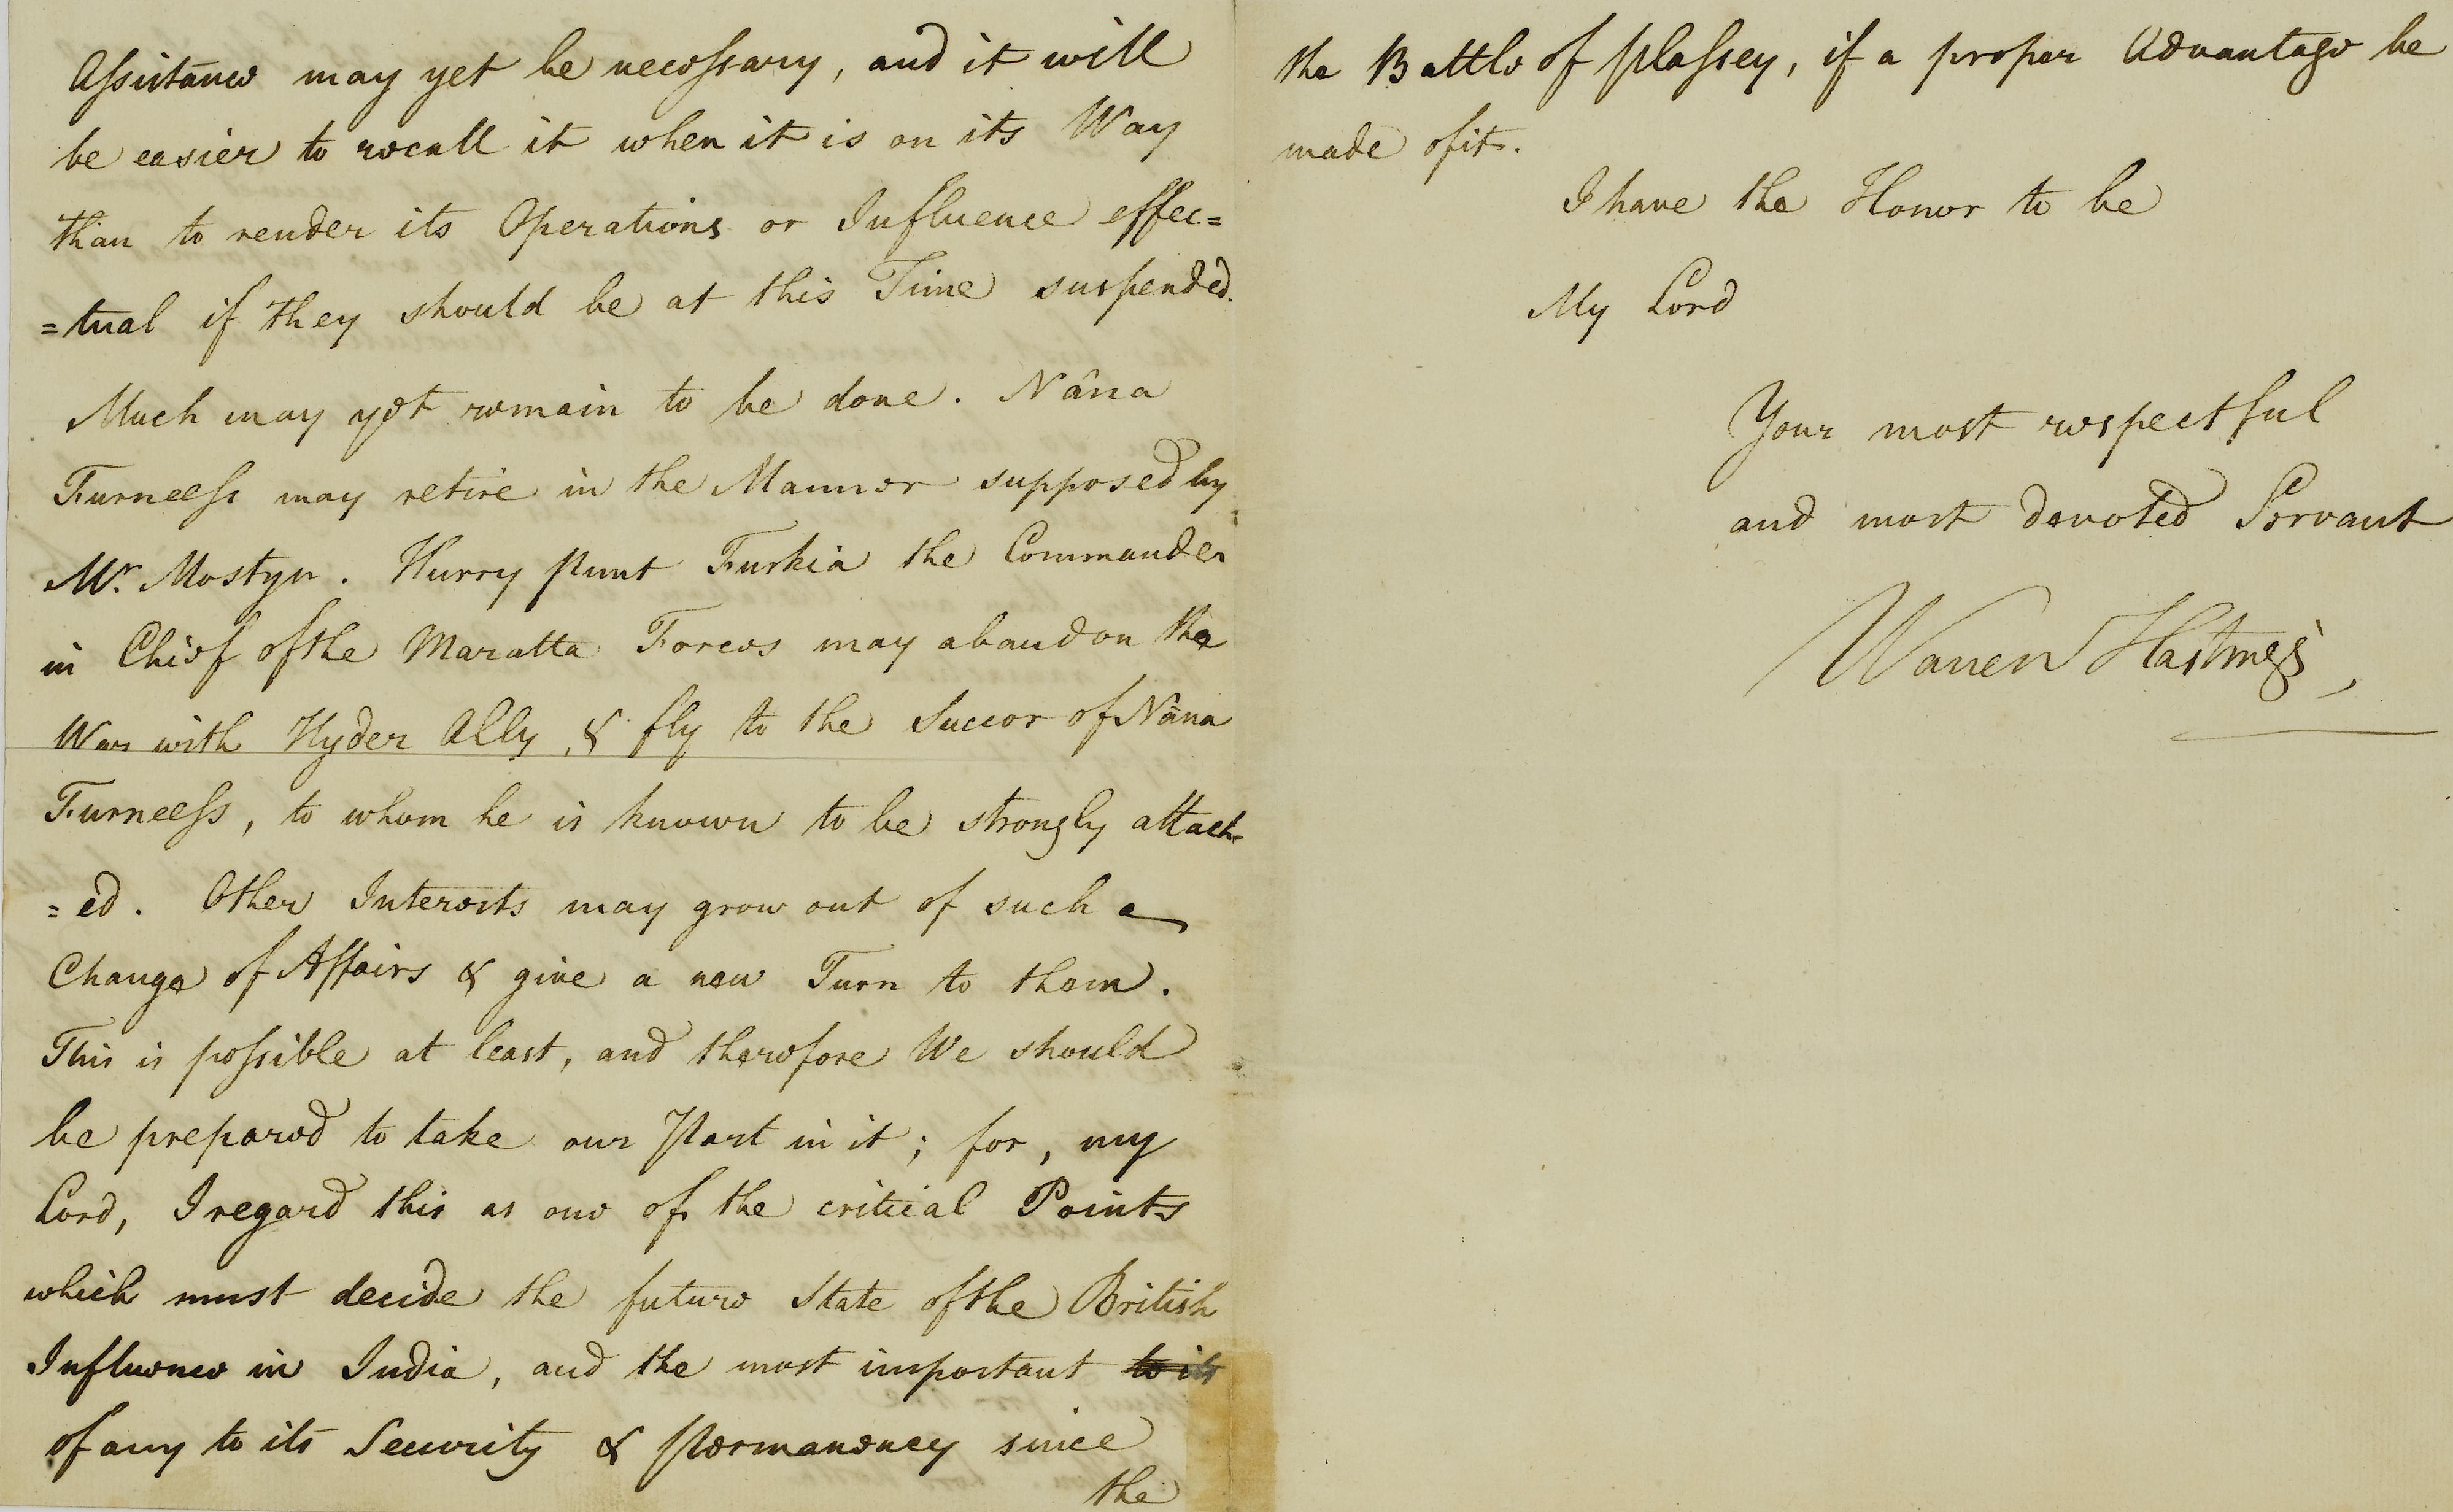 Assistance may yet be necessary, and it will
be easier to recall it when it is on its Way
than to render its Operations or Influence effec=
=tual if they should be at this Time suspended.
Much may yet remain to be done. Nâna
Furneess may retire in the Manner supposed by
Mr. Mostyn. Hurry Punt Furkia the Commander
in Chief of the Maratta Forces may abandon the
War with Hyder Ally, & fly to the Succor of Nâna
Furneess, to whom he is known to be strongly attach=
=ed. Other Interests may grow out of such a
Change of Affairs & give a new Turn to them.
This is possible at least, and therefore We should
be prepared to take our Part in it; for, my
Lord, I regard this as one of the critical Points
which must decide the future State of the British
Influence in India, and the most important to its
of any to its Security & Permanency since
the
the Battle of Plassey, if a proper Advantage be
made of it.
I have the Honor to be
My Lord
Your most respectful
and most devoted Servant
Warren Hastings